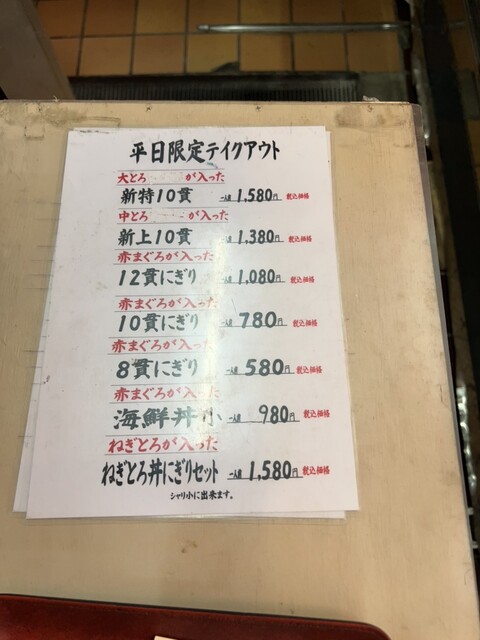 平日限定テイクアウト
大とろ が入った
新特10貫 一人前 1,580円 税込価格
中とろ が入った
新上10貫 一人前 1,380円 税込価格
赤まぐろが入った
12貫にぎり 一人前 1,080円 税込価格
赤まぐろが入った
10貫にぎり 一人前 780円 税込価格
赤まぐろが入った
8貫にぎり 一人前 580円 税込価格
赤まぐろが入った
海鮮丼小 一人前 980円 税込価格
ねぎとろが入った
ねぎとろ丼にぎりセット 一人前 1,580円 税込価格
シャリ小に出来ます。